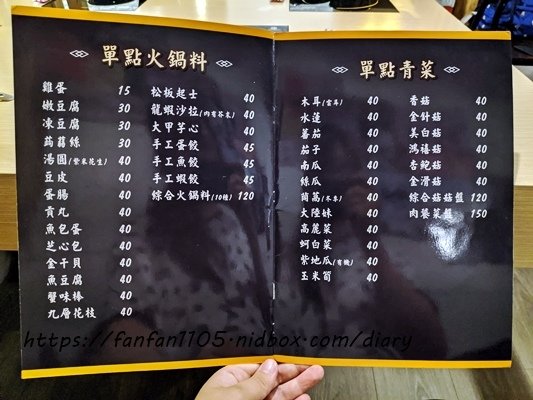 單點火鍋料
雞蛋 15
嫩豆腐 30
凍豆腐 30
蒟蒻絲 30
湯圓(紫米花生) 40
豆皮 40
蛋腸 40
貢丸 40
魚包蛋 40
芝心包 40
金干貝 40
魚豆腐 40
蟹味棒 40
九層花枝 40
松板起士 40
龍蝦沙拉(內有芥末) 40
大甲芋心 40
手工蛋餃 45
手工魚餃 45
手工蝦餃 45
綜合火鍋料(10種) 120
單點青菜
木耳(雲耳) 40
水蓮 40
蕃茄 40
茄子 40
南瓜 40
絲瓜 40
茼蒿(冬季) 40
大陸妹 40
高麗菜 40
蚵白菜 40
紫地瓜(有機) 40
玉米筍 40
香菇 40
金針菇 40
美白菇 40
鴻禧菇 40
杏鮑菇 40
金滑菇 40
綜合菇菇盤 120
肉襲菜盤 150
https://fanfan1105.nidbox.com/diary